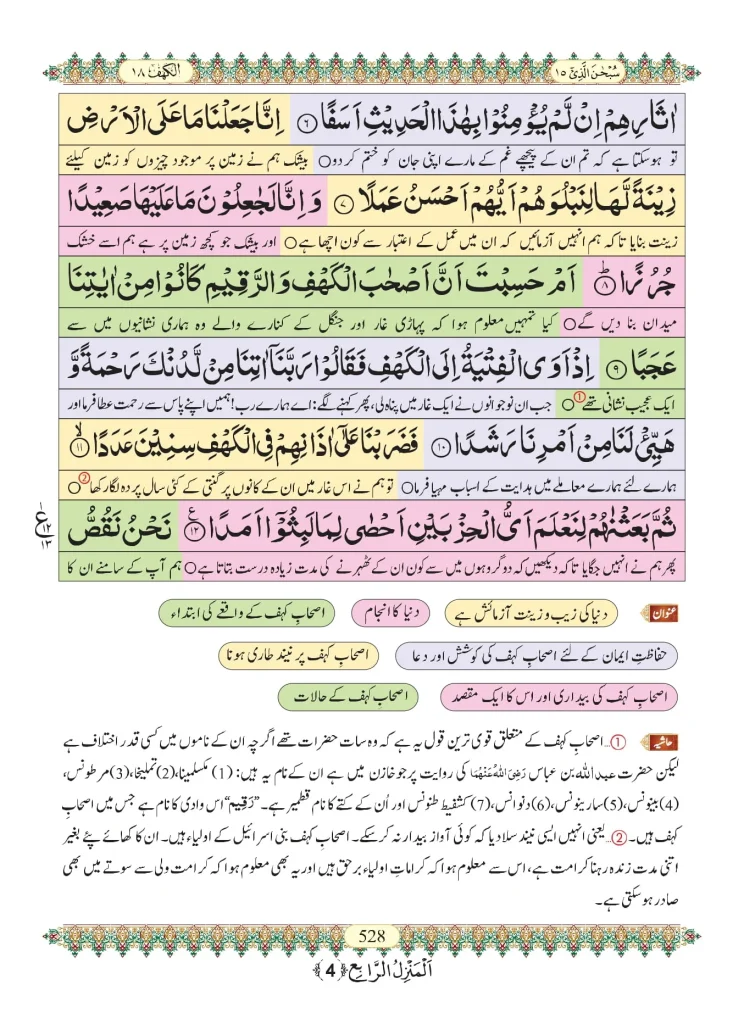 سُبْحٰنَ الَّذِيْٓ ١٥
الْكَهْف ١٨
اٰثَارِهِمْ اِنْ لَّمْ يُؤْمِنُوْا بِهٰذَا الْحَدِيْثِ اَسَفًا ﴿٦﴾ اِنَّا جَعَلْنَا مَا عَلَى الْاَرْضِ
تو ہوسکتا ہے کہ تم ان کے پیچھے غم کے مارے اپنی جان کو ختم کر دو○ بیشک ہم نے زمین پر موجود چیزوں کو زمین کیلئے
زِيْنَةً لَّهَا لِنَبْلُوَهُمْ اَيُّهُمْ اَحْسَنُ عَمَلًا ﴿٧﴾ وَ اِنَّا لَجٰعِلُوْنَ مَا عَلَيْهَا صَعِيْدًا
زینت بنایا تاکہ ہم انہیں آزمائیں کہ ان میں عمل کے اعتبار سے کون اچھا ہے○ اور بیشک جو کچھ زمین پر ہے ہم اسے خشک
جُرُزًا ﴿٨﴾ؕ اَمْ حَسِبْتَ اَنَّ اَصْحٰبَ الْكَهْفِ وَ الرَّقِيْمِ كَانُوْا مِنْ اٰيٰتِنَا
میدان بنا دیں گے○ کیا تمہیں معلوم ہوا کہ پہاڑی غار اور جنگل کے کنارے والے وہ ہماری نشانیوں میں سے
عَجَبًا ﴿٩﴾ اِذْ اَوَى الْفِتْيَةُ اِلَى الْكَهْفِ فَقَالُوْا رَبَّنَاۤ اٰتِنَا مِنْ لَّدُنْكَ رَحْمَةً وَّ
ایک عجیب نشانی تھے①○ جب ان نوجوانوں نے ایک غار میں پناہ لی، پھر کہنے لگے: اے ہمارے رب! ہمیں اپنے پاس سے رحمت عطا فرما اور
هَيِّئْ لَنَا مِنْ اَمْرِنَا رَشَدًا ﴿١٠﴾ فَضَرَبْنَا عَلٰۤى اٰذَانِهِمْ فِي الْكَهْفِ سِنِيْنَ عَدَدًا ﴿١١﴾ۙ
ہمارے لئے ہمارے معاملے میں ہدایت کے اسباب مہیا فرما○ تو ہم نے اس غار میں ان کے کانوں پر گنتی کے کئی سال پردہ لگا رکھا②○
ثُمَّ بَعَثْنٰهُمْ لِنَعْلَمَ اَيُّ الْحِزْبَيْنِ اَحْصٰى لِمَا لَبِثُوْۤا اَمَدًا ﴿١٢﴾ࣖ نَحْنُ نَقُصُّ
پھر ہم نے انہیں جگایا تاکہ دیکھیں کہ دو گروہوں میں سے کون ان کے ٹھہرنے کی مدت زیادہ درست بتاتا ہے○ ہم آپ کے سامنے ان کا
١
ع
١٢
١٣
عنوان
دنیا کی زیب و زینت آزمائش ہے
دنیا کا انجام
اصحابِ کہف کے واقعے کی ابتداء
حفاظتِ ایمان کے لئے اصحابِ کہف کی کوشش اور دعا
اصحابِ کہف پر نیند طاری ہونا
اصحابِ کہف کی بیداری اور اس کا ایک مقصد
اصحابِ کہف کے حالات
حاشیہ ①... اصحابِ کہف کے متعلق قوی ترین قول یہ ہے کہ وہ سات حضرات تھے اگرچہ ان کے ناموں میں کسی قدر اختلاف ہے
لیکن حضرت عبد اللہ بن عباس رَضِیَ اللہُ عَنْہُمَا کی روایت پر جو خازن میں ہے ان کے نام یہ ہیں: (1) مکسلمینا، (2) تملیخا، (3) مرطونس،
(4) بینونس، (5) سارینونس، (6) ذنوانس، (7) کشفیط طنونس اور اُن کے کتے کا نام قطمیر ہے۔ ”رَقِیم“ اس وادی کا نام ہے جس میں اصحابِ
کہف ہیں۔ ②... یعنی انہیں ایسی نیند سلا دیا کہ کوئی آواز بیدار نہ کرسکے۔ اصحابِ کہف بنی اسرائیل کے اولیاء ہیں۔ ان کا کھائے پئے بغیر
اتنی مدت زندہ رہنا کرامت ہے، اس سے معلوم ہوا کہ کراماتِ اولیاء برحق ہیں اور یہ بھی معلوم ہوا کہ کرامت ولی سے سوتے میں بھی
صادر ہو سکتی ہے۔
528
اَلْمَنْزِلُ الرَّابِع ﴿4﴾